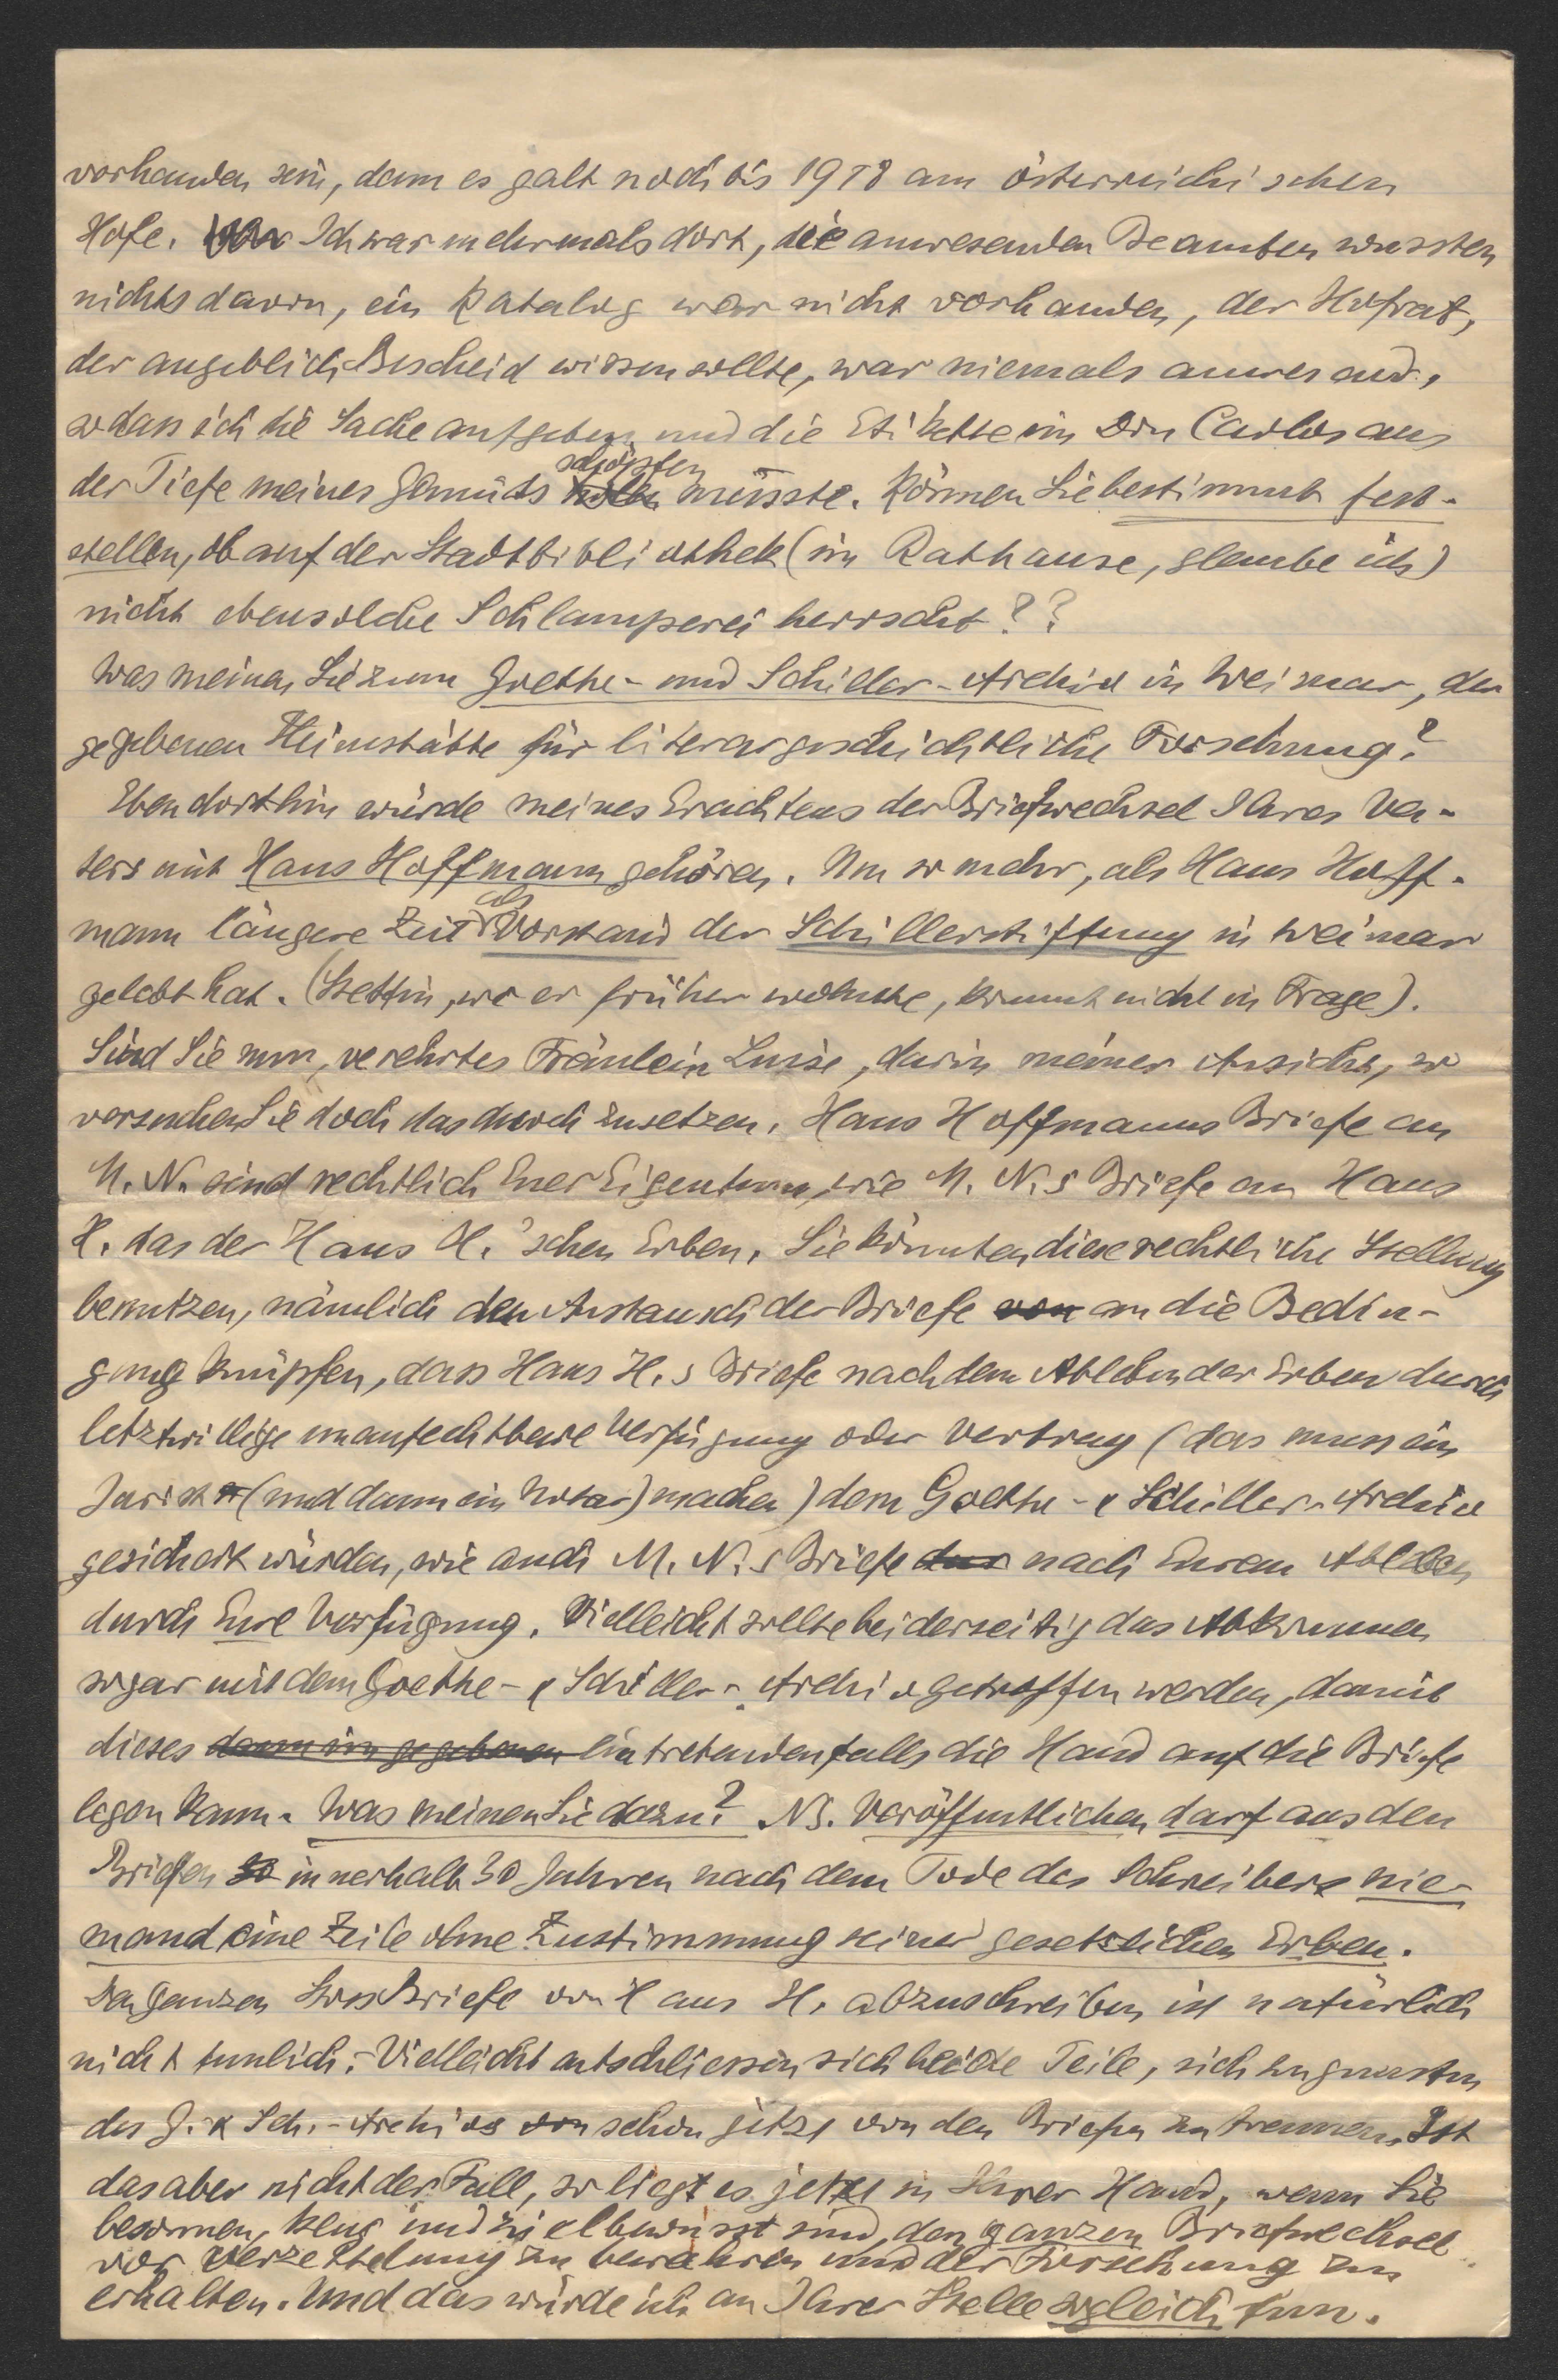 vorhanden sein, denn es galt noch bis 1918 am österreichischen
Hofe. Ich war mehrmals dort, die anwesenden Beamten wussten
nichts davon, ein Katalog war nicht vorhanden, der Hofrat,
der angeblich Bescheid wissen sollte, war niemals anwesend,
sodass ich die Sache aufgeben und die Etikette im Don Carlos aus
der Tiefe meines Gemüts holen schöpfen müsste. Können Sie bestimmt fest-
stellen, ob auf der Stadtbibliothek (im Rathause, glaube ich)
nicht ebensolche Schlamperei herrscht??
Was meinen Sie zum Goethe- und Schiller-Archiv in Weimar, der
gegebenen Heimstätte für literargeschichtliche Forschung?
Ebendorthin würde meines Erachtens der Briefwechsel Ihres Va-
ters mit Hans Hoffmann gehören. Um so mehr, als Hans Hoff-
mann längere Zeit als Vorstand der Schillerstiftung in Weimar
gelebt hat. (Stettin, wo er früher wohnte, kommt nicht in Frage).
Sind Sie nun, verehrtes Fräulein Luise, darin meiner Ansicht, so
versuchen Sie doch das durchzusetzen. Hans Hoffmanns Briefe an
M. N. sind rechtlich Euer Eigentum, wie M. N.s Briefe an Hans
H. das der Hans H.'schen Erben. Sie könnten diese rechtliche Stellung
benutzen, nämlich den Austausch der Briefe von an die Bedin-
gung knüpfen, dass Hans H.s Briefe nach dem Ableben der Erben durch
letztwillige unanfechtbare Verfügung oder Vertrag (das muss ein
Jurist (und dann ein Notar) machen) dem Goethe- & Schiller-Archiv
gesichert würden, wie auch M. N.s Briefe nach Eurem Ableben
durch Eure Verfügung. Vielleicht sollte beiderseitig das Abkommen
sogar mit dem Goethe- & Schiller-Archiv getroffen werden, damit
dieses dann im gegebenen eintretendenfalls die Hand auf die Briefe
legen kann. Was meinen Sie dazu? NB. Veröffentlichen darf aus den
Briefen innerhalb 30 Jahren nach dem Tode des Schreibers nie-
mand eine Zeile ohne Zustimmung seiner gesetzlichen Erben.
Den ganzen Stoss Briefe von Hans H. abzuschreiben ist natürlich
nicht tunlich. Vielleicht entschliessen sich beide Teile, sich zugunsten
des G. & Sch.-Archivs von schon jetzt von den Briefen zu trennen. Ist
das aber nicht der Fall, so liegt es jetzt in Ihrer Hand, wenn Sie
besonnen, klug und zielbewusst sind, den ganzen Briefwechsel
vor Verzettelung zu bewahren und der Forschung zu
erhalten. Und das würde ich an Ihrer Stelle sogleich tun.